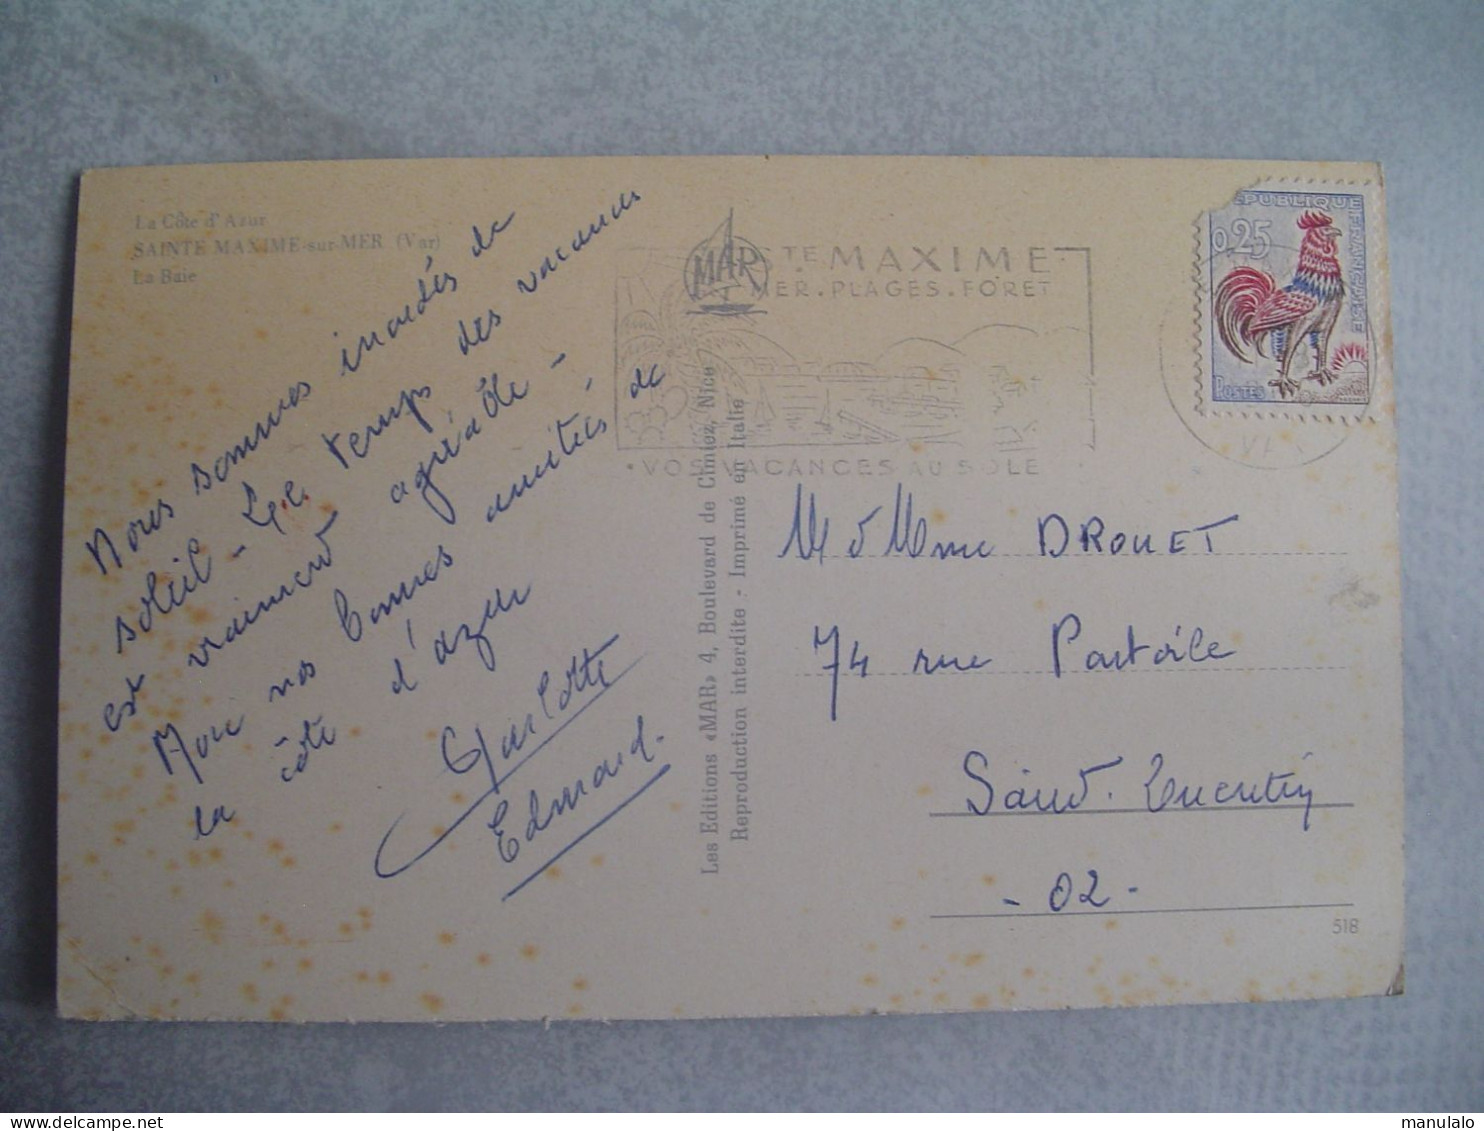 La Côte d'Azur
SAINTE MAXIME-sur-MER (Var)
La Baie
Nous sommes inondés de
soleil - Le temps des vacances
est vraiment agréable -
nos bonnes amitiés de
la côte d'azur
Charlotte
Edmond.
Les Editions «MAR» 4, Boulevard de Cimiez, Nice
Reproduction interdite - Imprimé en Italie
MAR
STE MAXIME
MER. PLAGES. FORET
VOS VACANCES AU SOLE
REPUBLIQUE FRANÇAISE
0,25
POSTES
M & Mme DROUET
74 rue
Saint. Quentin
- 02 -
518
www.delcampe.net
manulalo